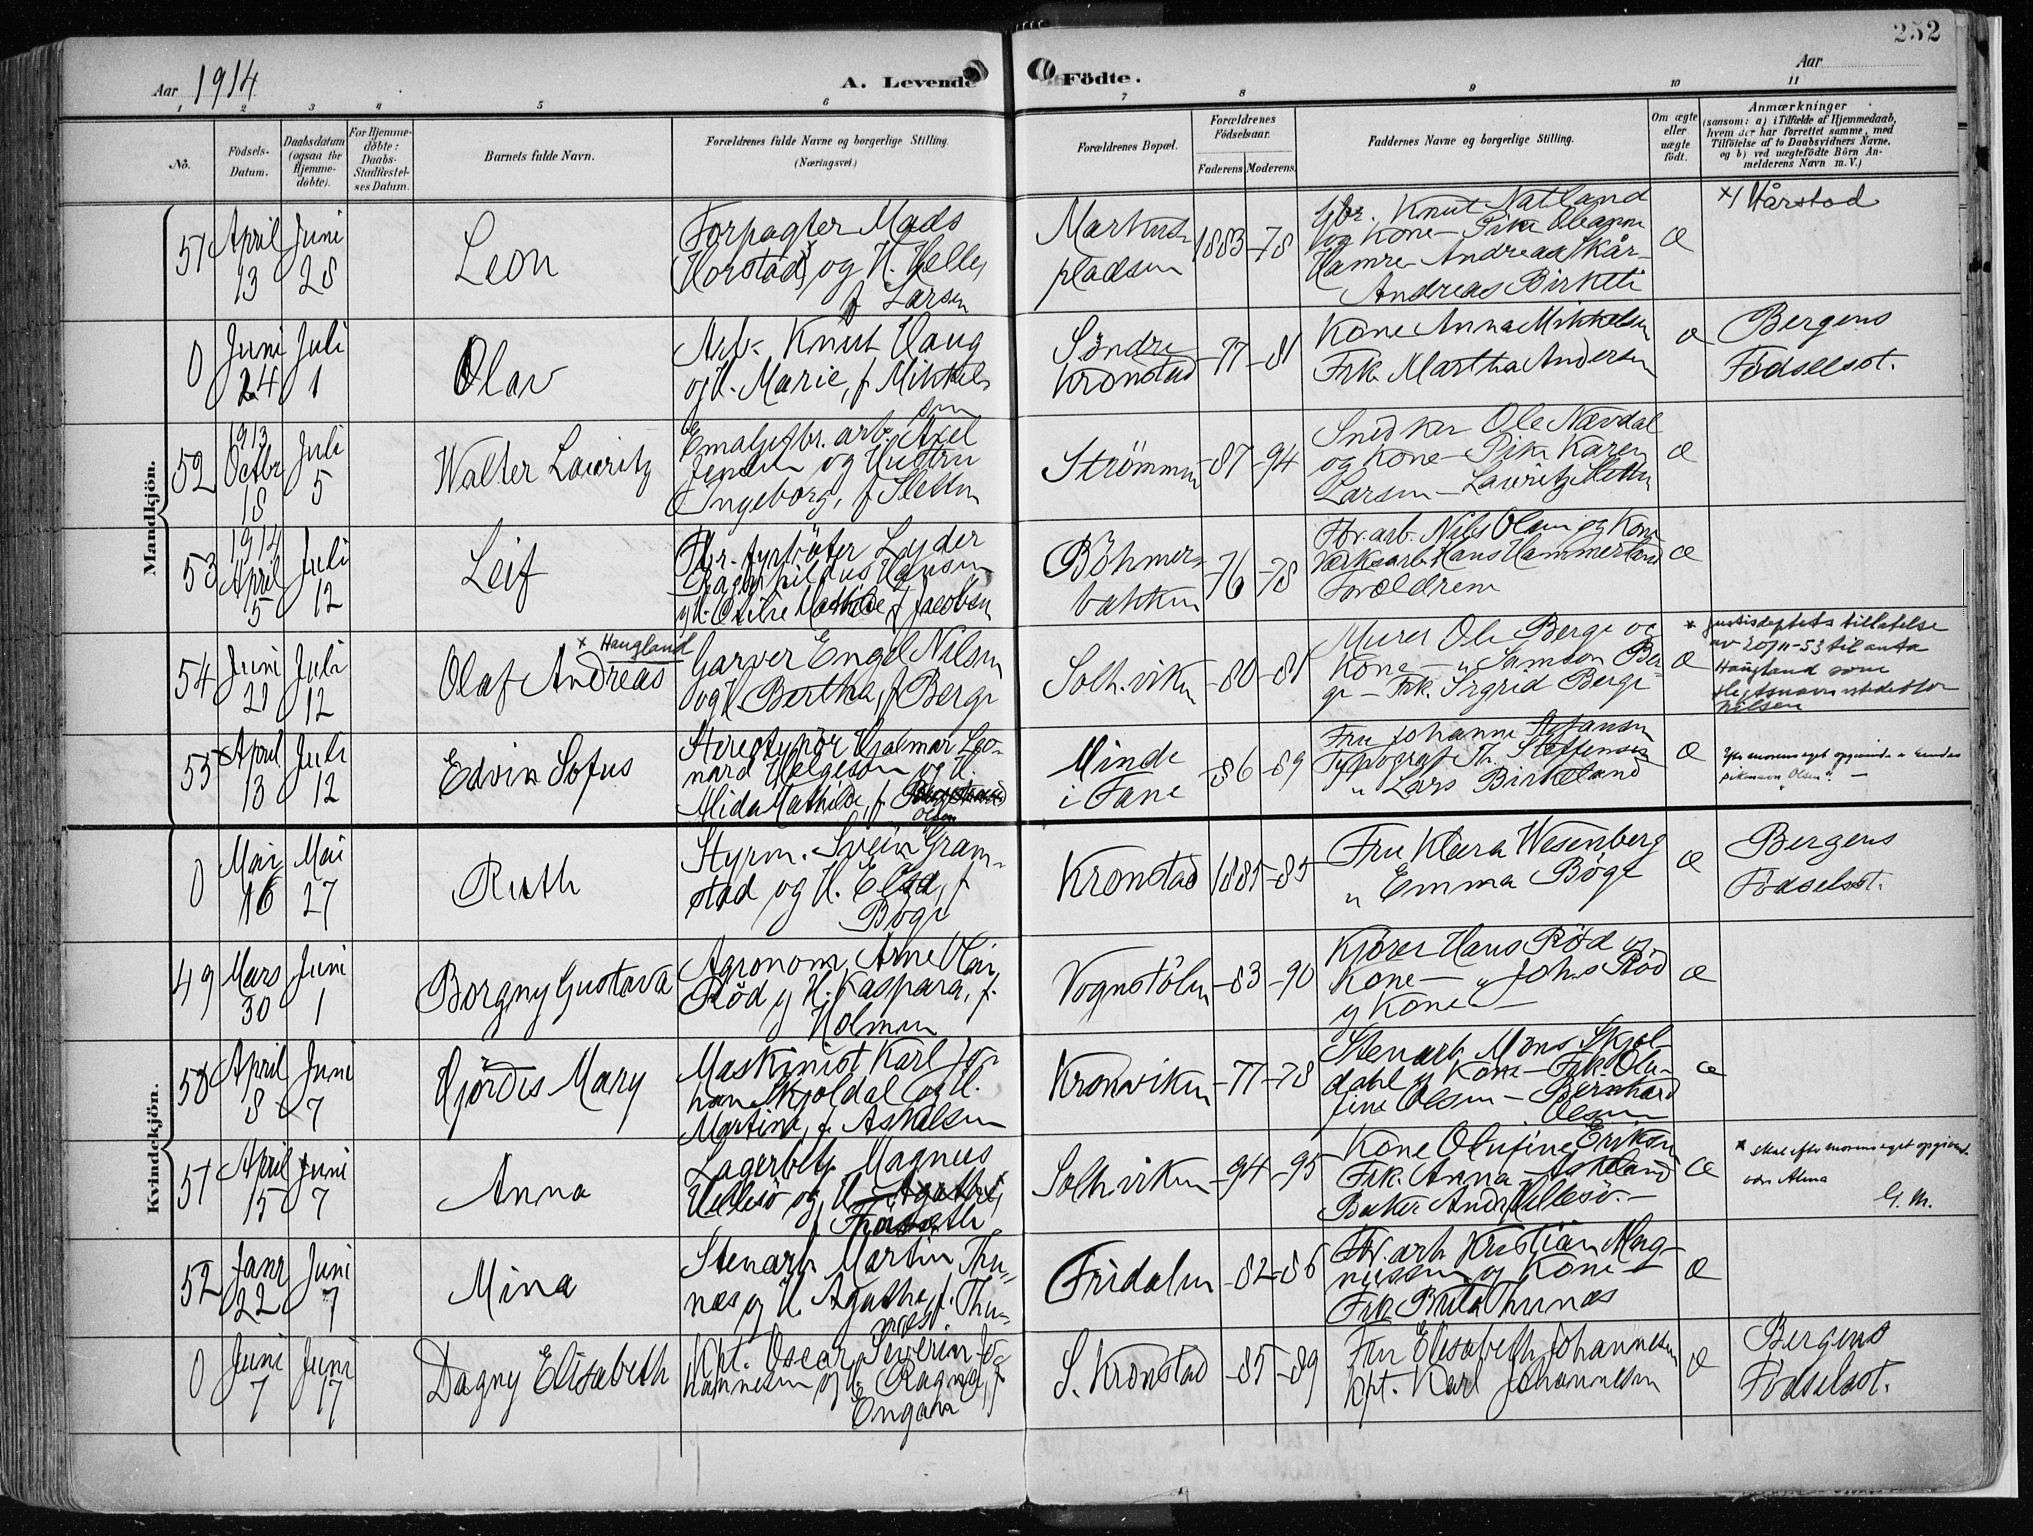 252
Aar 1914
A. Levende Födte.
Aar
1 2 3 4 5 6 7 8 9 10 11
No.
Födsels-Datum.
Daabsdatum (ogsaa for Hjemme-döbte).
For Hjemme-döbte: Daabs-Stadfæstel-ses Datum.
Barnets fulde Navn.
Forældrenes fulde Navne og borgerlige Stilling.
(Næringsvei.)
Forældrenes Bopæl.
Forældrenes Födselsaar.
Faderens Moderens.
Faddernes Navne og borgerlige Stilling.
Om ægte eller uægte födt.
Anmærkninger
(saasom: a) i Tilfælde af Hjemmedaab,
hvem der har forrettet samme, med
Tilföielse af to Daabsvidners Navne,
og b) ved uægtefödte Börn An-
melderens Navn m. V.)
Mandkjön.
51 April 13 Juni 28
Leon
Forpagter Mads
Horstad, og H. Helle,
f. Larsen
Markus-
pladsen
1883 -78
Gbr. Knut Natland
og Kone - Pike Oleanna
Hamre - Andreas Kår-
Andreas Birkeli
æ
x/ Hårstad
0 Juni 24 Juli 1
Olav
Arb. Knut Haug
og H. Marie, f. Mikkel-
sen
Söndre
Kronstad
-77 -81
Kone Anna Mikkelsen
Frk. Martha Andersen
æ
Bergens
Födselsst.
52 1913 Octbr 18 Juli 5
Walter Lauritz
Emaljefbr. arb. Axel
Jensen og Hustru
Ingeborg, f. Sletten
Strømmen
-87 -94
Snedker Ole Nævdal
og Kone - Pike Karen
Larsen - Lauritz Sletten
æ
53 1914 April 5 Juli 12
Leif
Fbr. fyrbøter Lyder
Hansen
og H. Cecilie Mathilde f. Jacobsen
Böhmer-
bakken
-76 -78
Fbr. arb. Nils Olsen og Kone
Værksarb. Hans Hammerland
Forældrene
æ
54 Juni 21 Juli 12
x Haugland
Olaf Andreas
Garver Engel Nilsen
og H. Bertha, f. Berge
Solh.viken
-80 -81
Murer Ole Berge og
Kone - " Samson Ber-
ge - Frk. Sigrid Berge
æ
x Justisdeptets tillatelse
av 20/11-53 til anta
Haugland som
slegtsnavn istedetfor
Nilsen
55 April 13 Juli 12
Edvin Sofus
Stereotypör Hjalmar Leo-
nard Helgesen og H.
Mida Mathilde, f.
Olsen
Minde
i Fane
-86 -89
Fru Johanne
Typograf Th. Steffensen
" Lars Birkeland
æ
Efter morens eget opgivende
pikenavn Olsen
Kvindekjön.
0 Mai 16 Mai 27
Ruth
Styrm. Svein Gram-
stad og H. Elsa, f.
Bøge
Kronstad
1885 -85
Fru Klara Wesenberg
" Emma Bøge
æ
Bergens
Födselsst.
49 Mars 30 Juni 1
Borgny Gustava
Agronom Arne
Röd og H. Kaspara, f.
Holmen
Vognstölen
-83 -90
Kjører Hans Röd og
Kone - " Johs Röd
og Kone -
æ
50 April 8 Juni 7
Hjördis Mary
Maskinist Karl Jo-
han Skjoldal og H.
Martine, f. Askelsen
Kronviken
-77 -78
Stenarb. Mons Skjol-
dahl og Kone - Frk. Olu-
fine Olsen - Bernhard
Olsen
æ
51 April 15 Juni 7
Anna
Lagerbetj. Magnus
Hellesö og H. Agathe,
f.
Solh.viken
-94 -95
Kone Olufine Eriksen
Frk. Anna Askeland
Baker Andr. Hellesö. -
æ
x skal efter morens eget opgivende
være Alma
G. M.
52 Janr 22 Juni 7
Mina
Stenarb. Martin Thu-
næs og H. Agatha, f. Thu-
næs.
Fridalen
-82 -86
Fbr. arb. Kristian Mag-
nussen og Kone -
Frk. Brita Thunæs
æ
0 Juni 7 Juni 17
Dagny Elisabeth
Kpt. Oscar Severin Jo-
hannesen og H. Ragna, f.
S. Kronstad
-85 -89
Fru Elisabeth Johannesen
Kpt. Karl Johannesen
æ
Bergens
Födselsst.